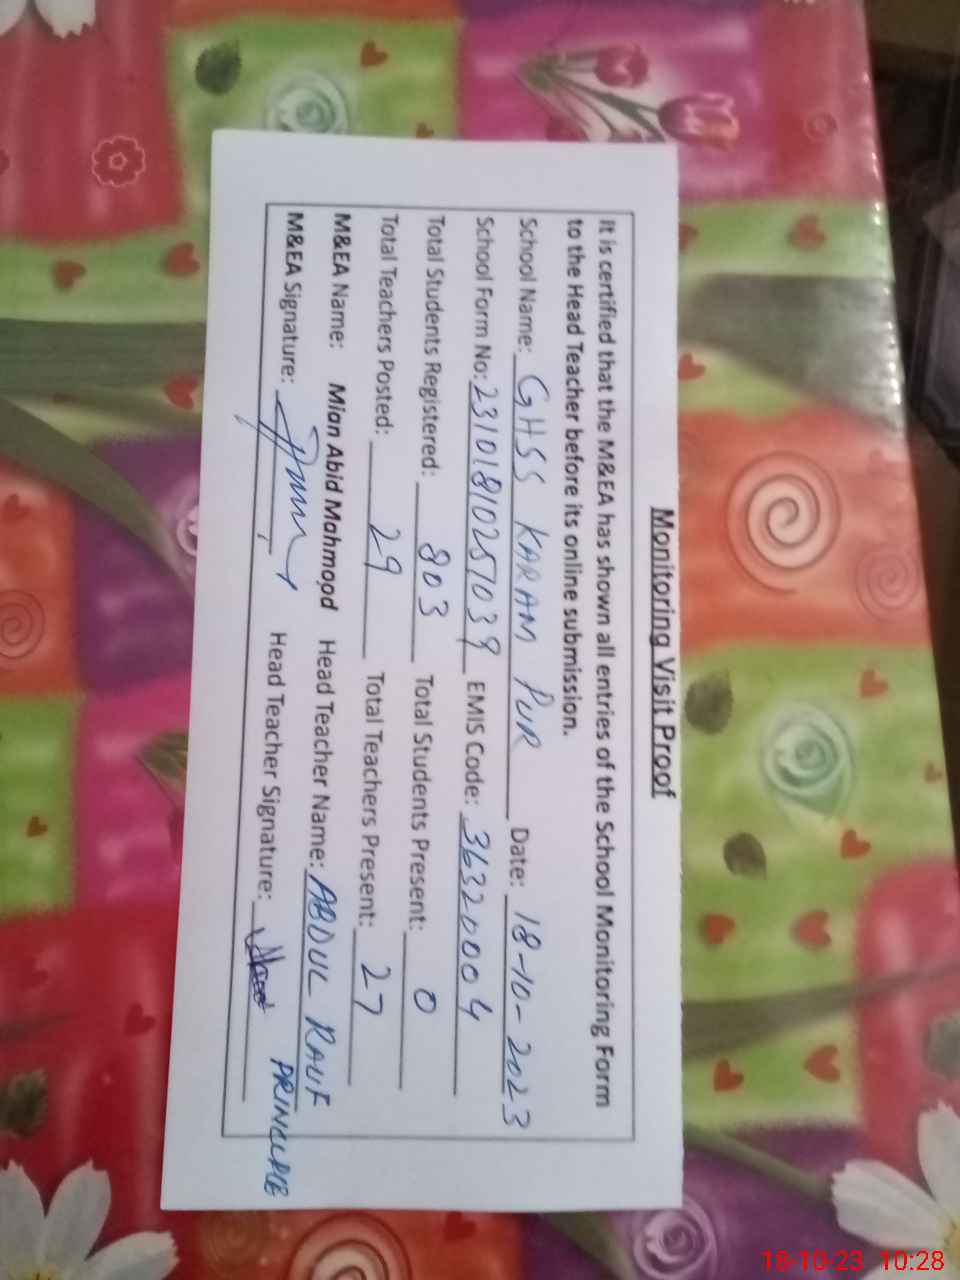 Monitoring Visit Proof
It is certified that the M&EA has shown all entries of the School Monitoring Form
to the Head Teacher before its online submission.
School Name: GHSS KARAM PUR Date: 18-10-2023
School Form No: 23101810257039 EMIS Code: 36320004
Total Students Registered: 803 Total Students Present: 0
Total Teachers Posted: 29 Total Teachers Present: 27
M&EA Name: Mian Abid Mahmood Head Teacher Name: ABDUL RAUF
M&EA Signature: Head Teacher Signature:
18-10-23 10:28